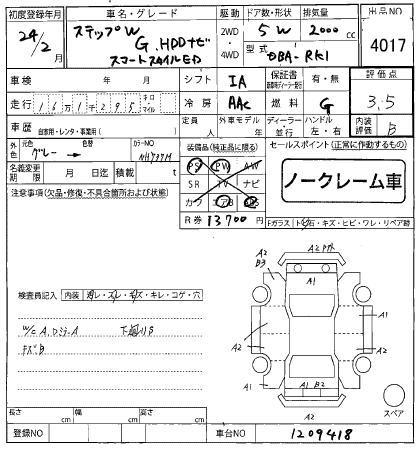 初度登録年月 車名・グレード 駆動 ドア数・形状 排気量 出品NO
24年 2月 ステップW G.HDDナビ スマートスタイルED 2WD・4WD 5W 2000cc 4017
型式 DBA-RK1
車検 年 月 シフト IA 保証書 有・無 評価点
走行 161千295 キロ・マイル 冷房 AAC 燃料 G 3.5
車歴 自家用・レンタ・事業用( ) 定員 人 外車モデル 年 ディーラー・並行 ハンドル 左・右 内装 B
外色 元色 グレー → 色替 カラーNO NH737M 装備品(純正品に限る) セールスポイント(正常に作動するもの)
名義変更期限 月 日迄 積載 t PS PW AW
注意事項(欠品・修復・不具合箇所および状態) SR TV ナビ
カワ エアB
ノークレーム車
R券 13700
Fガラス トビ石・キズ・ヒビ・ワレ・リペア跡
検査員記入 内装 ヨゴレ・スレ・キズ・キレ・コゲ・穴
W/C A.Dミラ-A 下廻りB
キズ.B
A2
A2
B3
A1
A2
A2
A1
A1
A2
A1
A1
B2
A2
スペア
長さ cm 幅 cm 高さ cm
登録NO 車台NO 1209418